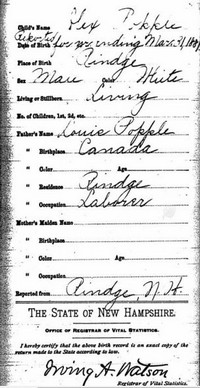 Child's Name Alex Popple
Reported
Date of Birth for yr ending Mar. 31, 1881
Place of Birth Rindge
Sex Male Color White
Living or Stillborn Living
No. of Children, 1st, 2d, etc.
Father's Name Louis Popple
" Birthplace Canada
" Color Age
" Residence Rindge
" Occupation Laborer
Mother's Maiden Name
" Birthplace
" Color Age
" Occupation
Reported from Rindge, N.H.
THE STATE OF NEW HAMPSHIRE.
OFFICE OF REGISTRAR OF VITAL STATISTICS.
I hereby certify that the above birth record is an exact copy of the
return made to the State according to law.
Irving A. Watson
Registrar of Vital Statistics.